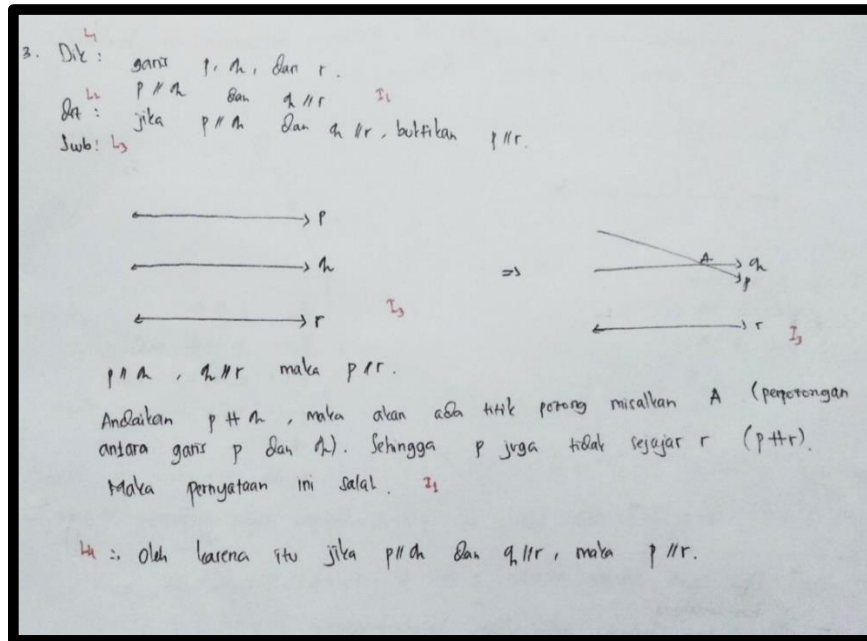 L1
3. Dik : garis p, q, dan r.
p // q dan q // r I1
L2
Dit : jika p // q dan q // r, buktikan p // r.
Jwb : L3
p
q
r I3
⇒
A
q
p
r I3
p // q , q // r maka p // r.
Andaikan p ∦ q, maka akan ada titik potong misalkan A (perpotongan
antara garis p dan q). Sehingga p juga tidak sejajar r (p ∦ r).
Maka pernyataan ini salah. I1
L4 ∴ Oleh karena itu jika p // q dan q // r, maka p // r.